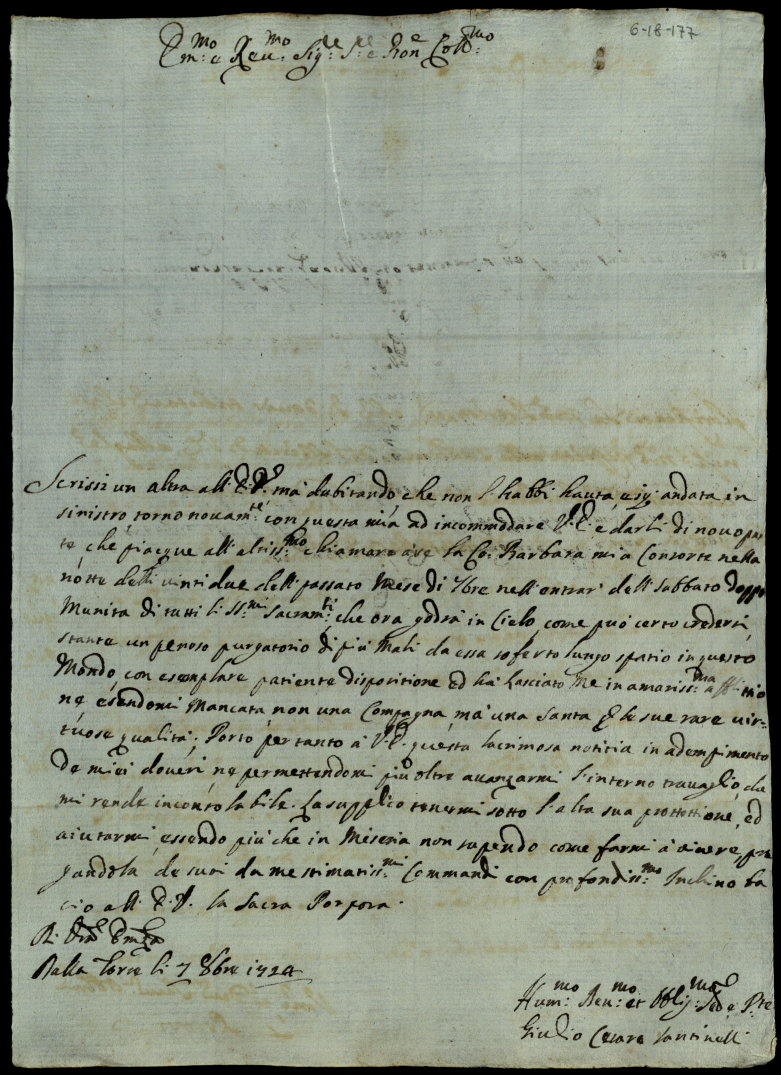 6-18-177
Em:mo e Reu:mo Sig:re S:re e Pron:e Coll:mo
Scrissi un altra all'E.V. mà dubitando, che non l'habbi hauta, e sij andata in
sinistro, torno nouam:te con questa mia ad incommodare V.E. e darli di nouo par
te, che piacque all'altiss:mo chiamare à se la Co: Barbara mia Consorte nella
notte delli uinti due dell'passato Mese di 7bre nell'entrar dell'Sabbato doppo
Munita di tutti li SS:mi Sacram:ti, che ora godrà in Cielo, come può certo credersi,
stante un penoso purgatorio di più Mali da essa soferto lungo spatio in questo
Mondo, con esemplare patiente dispositione ed hà lasciato me in amariss:ma afflitio
ne esendomi Mancata non una Compagna, mà una Santa p le sue rare uir-
tuose qualità; Porto per tanto à V.E. questa lacrimosa notitia in adempimento
de miei doueri, ne permettendomi più oltre auanzarmi l'interno trauaglio, che
mi rende inconsolabile. La supplico tenermi sotto l'alta sua prottettione, ed
aiutarmi, essendo più che in Miseria non sapendo come farmi à uiuere, pre
gandola de suoi da me stimatiss:mi Commandi con profondiss:mo Inchino ba
cio all'E.V. la Sacra Porpora.
Di V:ra Em:za
Dalla Torre li 7 8bre 1724
Hum:mo Deu:mo et Obblig:mo Ser:e
Giulio Cesare Santinelli